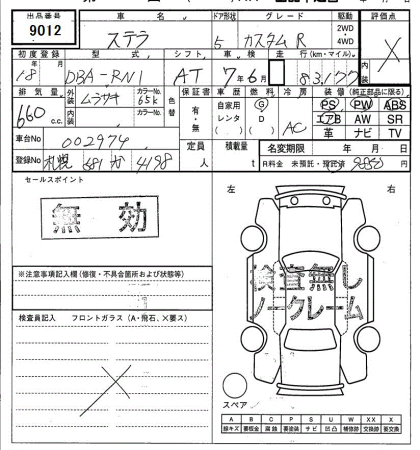 出品番号 車名 ドア形状 グレード 駆動 評価点
9012 ステラ 5 カスタムR 2WD・4WD
初度登録 型式 シフト 車検 走行(km・マイル)
18年 月 DBA-RN1 AT 7年6月 83,177
排気量 外装 ムラサキ カラーNo. 65K 色替 保証書 車歴 燃料 冷房 装備(純正部品に限る)
660 c.c. 内装 カラーNo. 有・無 自家用 レンタ ( ) G D AC PS PW ABS
エアB AW SR
革 ナビ TV
車台No 002974 定員 人 積載量 t 名変期限 年 月 日
登録No 札幌 581 か 4198 R料金 未預託・預託済
セールスポイント 左 右
無効
※注意事項記入欄(修復・不具合箇所および状態等)
検査無し
ノークレーム
検査員記入 フロントガラス(A・飛石、×要ス)
スペア
A B C P S U W X XX
線キズ 要板金 腐蝕 要塗装 サビ 凹凸 補修跡 要交換